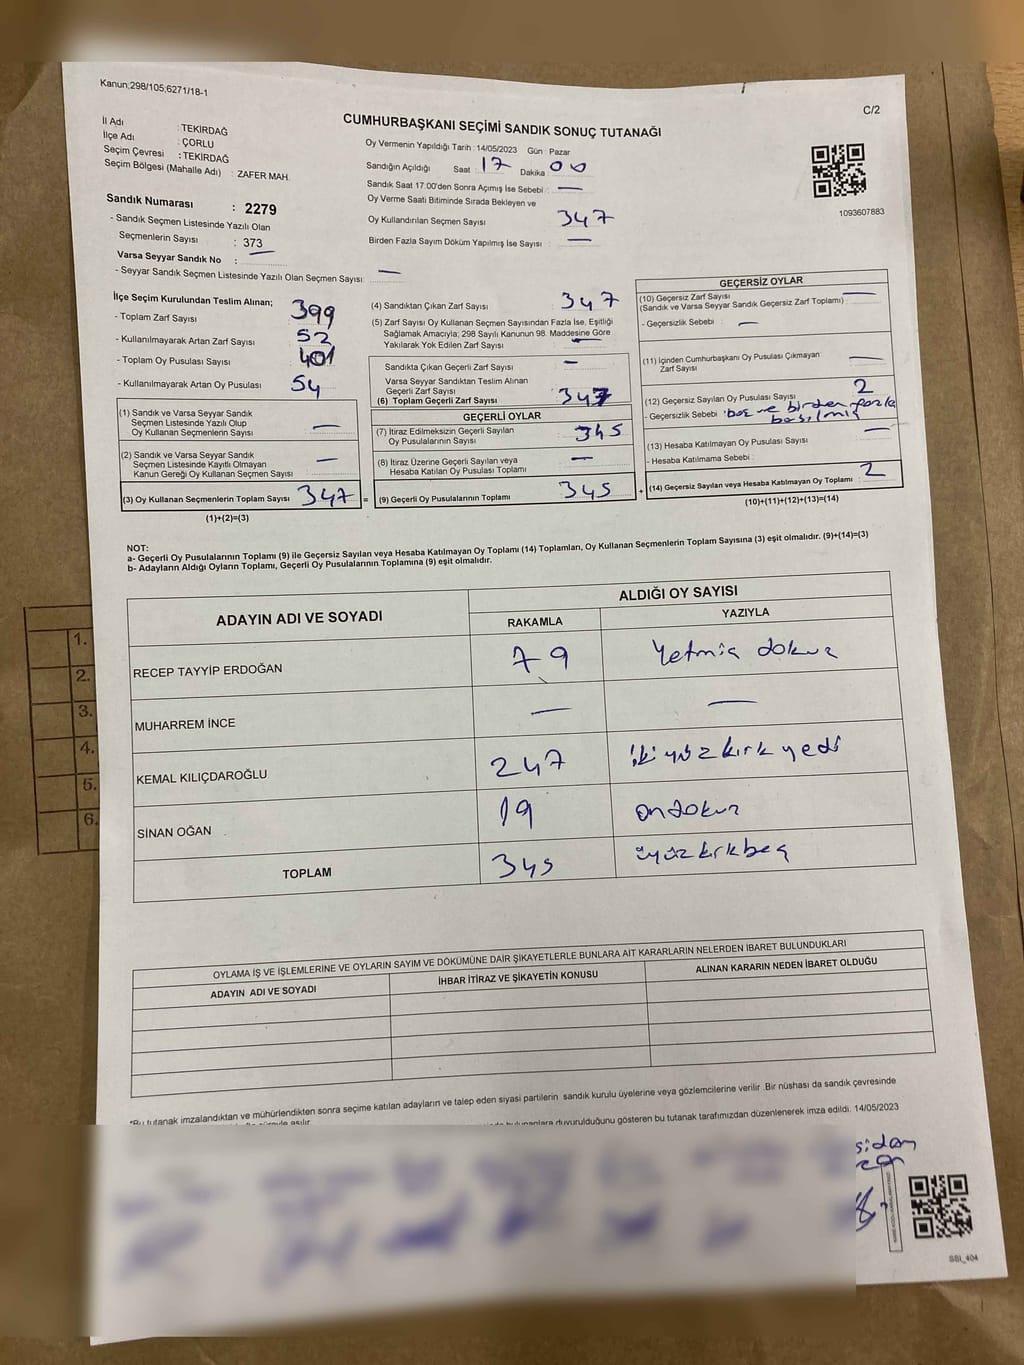 Kanun;298/105;6271/18-1
C/2
CUMHURBAŞKANI SEÇİMİ SANDIK SONUÇ TUTANAĞI
İl Adı : TEKİRDAĞ
İlçe Adı : ÇORLU
Seçim Çevresi : TEKİRDAĞ
Seçim Bölgesi (Mahalle Adı) : ZAFER MAH.
Oy Vermenin Yapıldığı Tarih : 14/05/2023 Gün : Pazar
Sandığın Açıldığı Saat : 17 Dakika : 00
Sandık Saat 17:00'den Sonra Açımış İse Sebebi : —
Oy Verme Saati Bitiminde Sırada Bekleyen ve
Oy Kullandırılan Seçmen Sayısı : 347
Birden Fazla Sayım Döküm Yapılmış İse Sayısı : —
1093607883
Sandık Numarası : 2279
- Sandık Seçmen Listesinde Yazılı Olan
Seçmenlerin Sayısı : 373
Varsa Seyyar Sandık No : —
- Seyyar Sandık Seçmen Listesinde Yazılı Olan Seçmen Sayısı: —
İlçe Seçim Kurulundan Teslim Alınan;
- Toplam Zarf Sayısı : 399
- Kullanılmayarak Artan Zarf Sayısı : 52
- Toplam Oy Pusulası Sayısı : 401
- Kullanılmayarak Artan Oy Pusulası : 54
(1) Sandık ve Varsa Seyyar Sandık
Seçmen Listesinde Yazılı Olup
Oy Kullanan Seçmenlerin Sayısı : —
(2) Sandık ve Varsa Seyyar Sandık
Seçmen Listesinde Kayıtlı Olmayan
Kanun Gereği Oy Kullanan Seçmen Sayısı : —
(3) Oy Kullanan Seçmenlerin Toplam Sayısı : 347 =
(1)+(2)=(3)
(4) Sandıktan Çıkan Zarf Sayısı : 347
(5) Zarf Sayısı Oy Kullanan Seçmen Sayısından Fazla İse, Eşitliği
Sağlamak Amacıyla; 298 Sayılı Kanunun 98. Maddesine Göre
Yakılarak Yok Edilen Zarf Sayısı : —
Sandıkta Çıkan Geçerli Zarf Sayısı : —
Varsa Seyyar Sandıktan Teslim Alınan
Geçerli Zarf Sayısı
(6) Toplam Geçerli Zarf Sayısı : 347
GEÇERLİ OYLAR
(7) İtiraz Edilmeksizin Geçerli Sayılan
Oy Pusulalarının Sayısı : 345
(8) İtiraz Üzerine Geçerli Sayılan veya
Hesaba Katılan Oy Pusulası Toplamı : —
(9) Geçerli Oy Pusulalarının Toplamı : 345 +
GEÇERSİZ OYLAR
(10) Geçersiz Zarf Sayısı : —
(Sandık ve Varsa Seyyar Sandık Geçersiz Zarf Toplamı)
- Geçersizlik Sebebi : —
(11) İçinden Cumhurbaşkanı Oy Pusulası Çıkmayan
Zarf Sayısı : —
(12) Geçersiz Sayılan Oy Pusulası Sayısı : 2
- Geçersizlik Sebebi : boş ve birden fazla
basılmış
(13) Hesaba Katılmayan Oy Pusulası Sayısı : —
- Hesaba Katılmama Sebebi :
(14) Geçersiz Sayılan veya Hesaba Katılmayan Oy Toplamı : 2
(10)+(11)+(12)+(13)=(14)
NOT:
a- Geçerli Oy Pusulalarının Toplamı (9) ile Geçersiz Sayılan veya Hesaba Katılmayan Oy Toplamı (14) Toplamları, Oy Kullanan Seçmenlerin Toplam Sayısına (3) eşit olmalıdır. (9)+(14)=(3)
b- Adayların Aldığı Oyların Toplamı, Geçerli Oy Pusulalarının Toplamına (9) eşit olmalıdır.
ADAYIN ADI VE SOYADI ALDIĞI OY SAYISI
RAKAMLA YAZIYLA
RECEP TAYYİP ERDOĞAN 79 Yetmiş dokuz
MUHARREM İNCE — —
KEMAL KILIÇDAROĞLU 247 iki yüz kırk yedi
SİNAN OĞAN 19 on dokuz
TOPLAM 345 üçyüz kırkbeş
OYLAMA İŞ VE İŞLEMLERİNE VE OYLARIN SAYIM VE DÖKÜMÜNE DAİR ŞİKAYETLERLE BUNLARA AİT KARARLARIN NELERDEN İBARET BULUNDUKLARI
ADAYIN ADI VE SOYADI İHBAR İTİRAZ VE ŞİKAYETİN KONUSU ALINAN KARARIN NEDEN İBARET OLDUĞU
*Bu tutanak imzalandıktan ve mühürlendikten sonra seçime katılan adayların ve talep eden siyasi partilerin sandık kurulu üyelerine veya gözlemcilerine verilir .Bir nüshası da sandık çevresinde
duyurulduğunu gösteren bu tutanak tarafımızdan düzenlenerek imza edildi. 14/05/2023
SSI_404
1.
2.
3.
4.
5.
6.